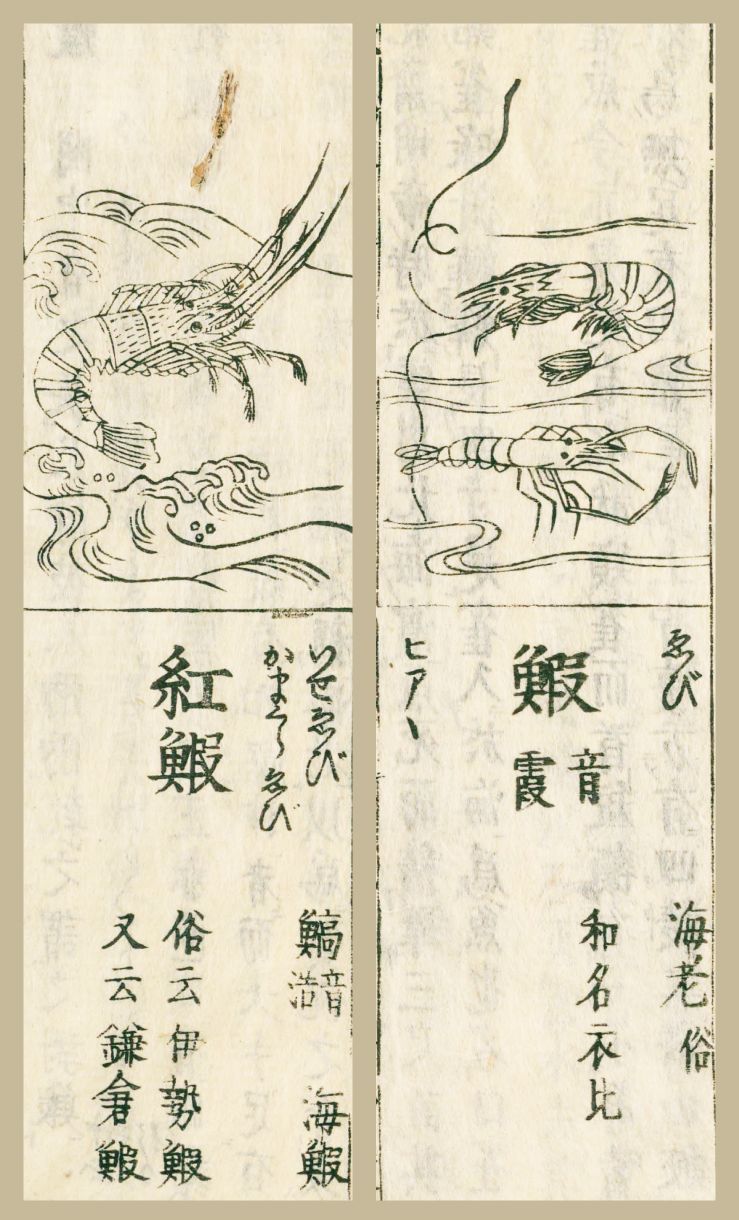 ゑび
鰕 音霞
ヒアヽ
海老 俗
和名衣比
いせゑび
かまくらゑび
紅鰕
鰝 音浩
海鰕
俗云伊勢鰕
又云鎌倉鰕